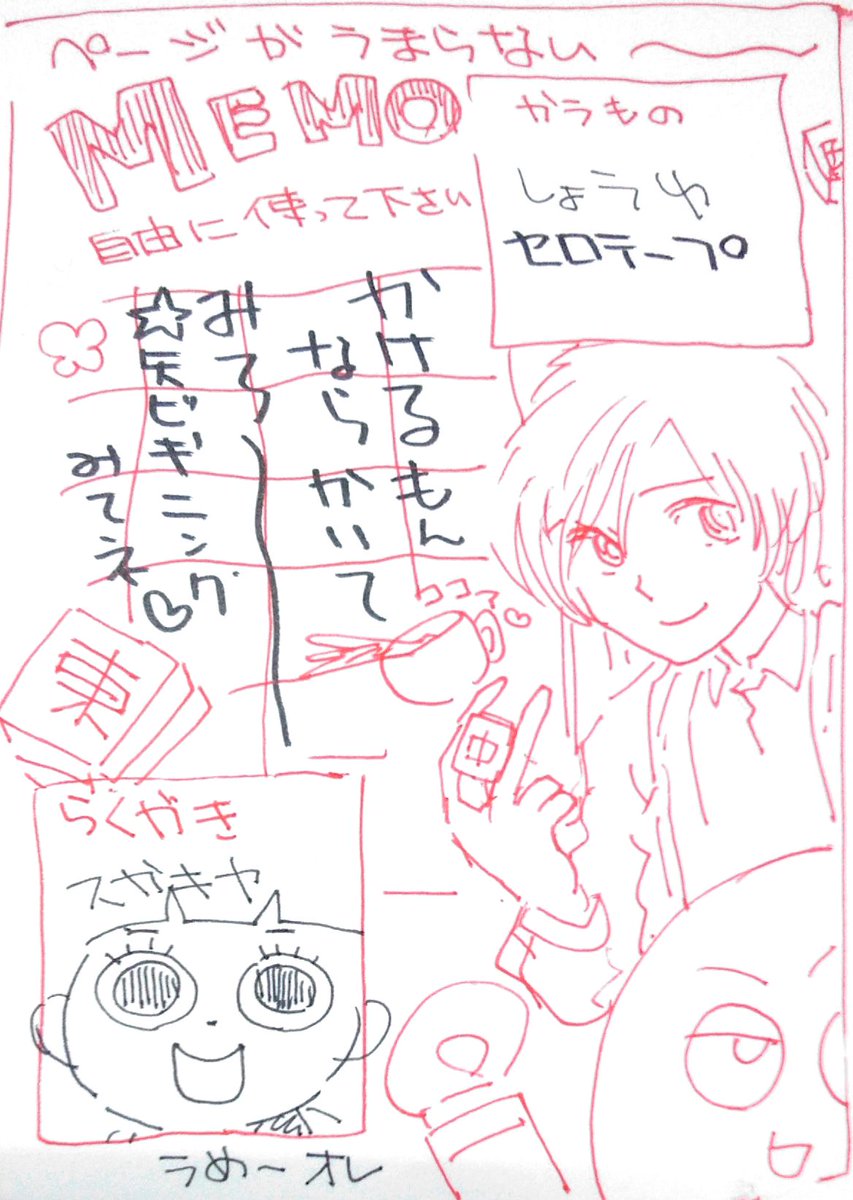 ページがうまらない〜
MEMO
自由に使って下さい
かうもの
しょうゆ
セロテープ
かけるもん
ならかいて
みて〜
☆矢ビギニング♡
みてえ
ココア♡
東
中
らくやき
スガキヤ
うめーオレ